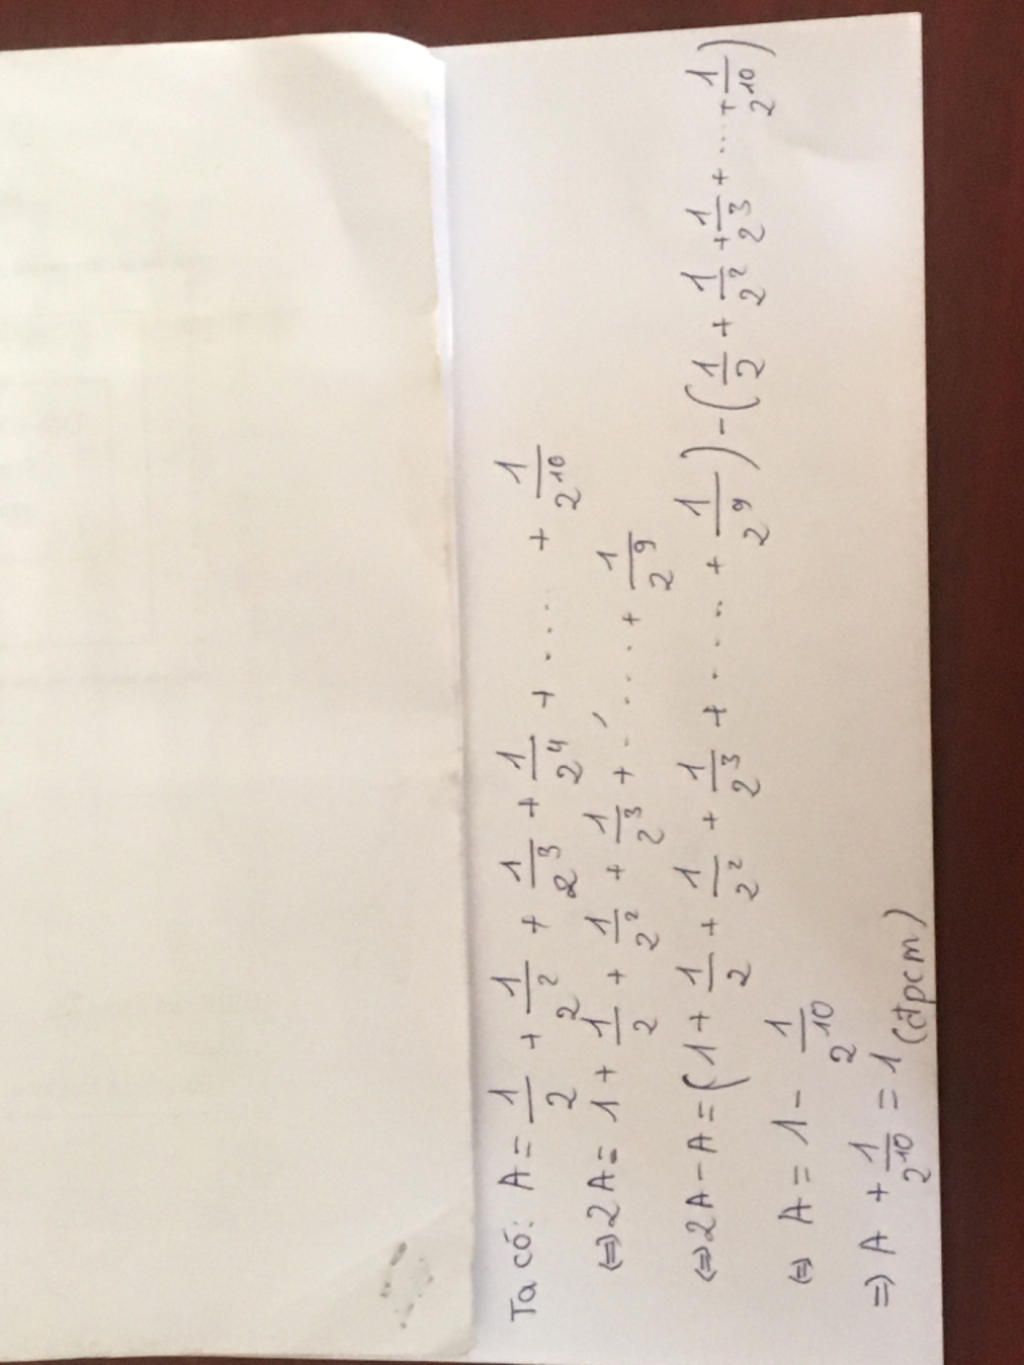 Ta có: A = 1/2 + 1/2² + 1/2³ + 1/2⁴ + .... + 1/2¹⁰
⇔ 2A = 1 + 1/2 + 1/2² + 1/2³ + ...... + 1/2⁹
⇔ 2A - A = (1 + 1/2 + 1/2² + 1/2³ + ..... + 1/2⁹) - (1/2 + 1/2² + 1/2³ + ... + 1/2¹⁰)
⇔ A = 1 - 1/2¹⁰
⇒ A + 1/2¹⁰ = 1 (đpcm)